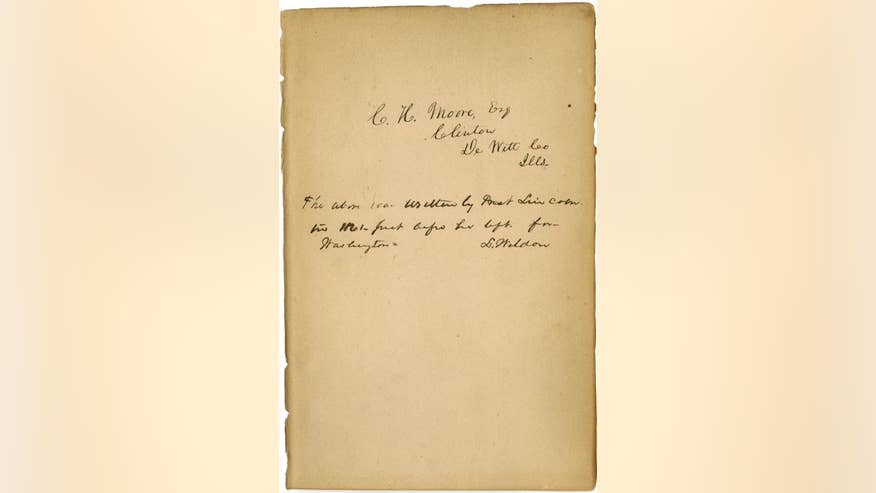 C. H. Moore, Esq
Clinton
De Witt Co
Ills.
The above was written by Prest Lincoln
in Mch just before he left for
Washington =
L. Weldon